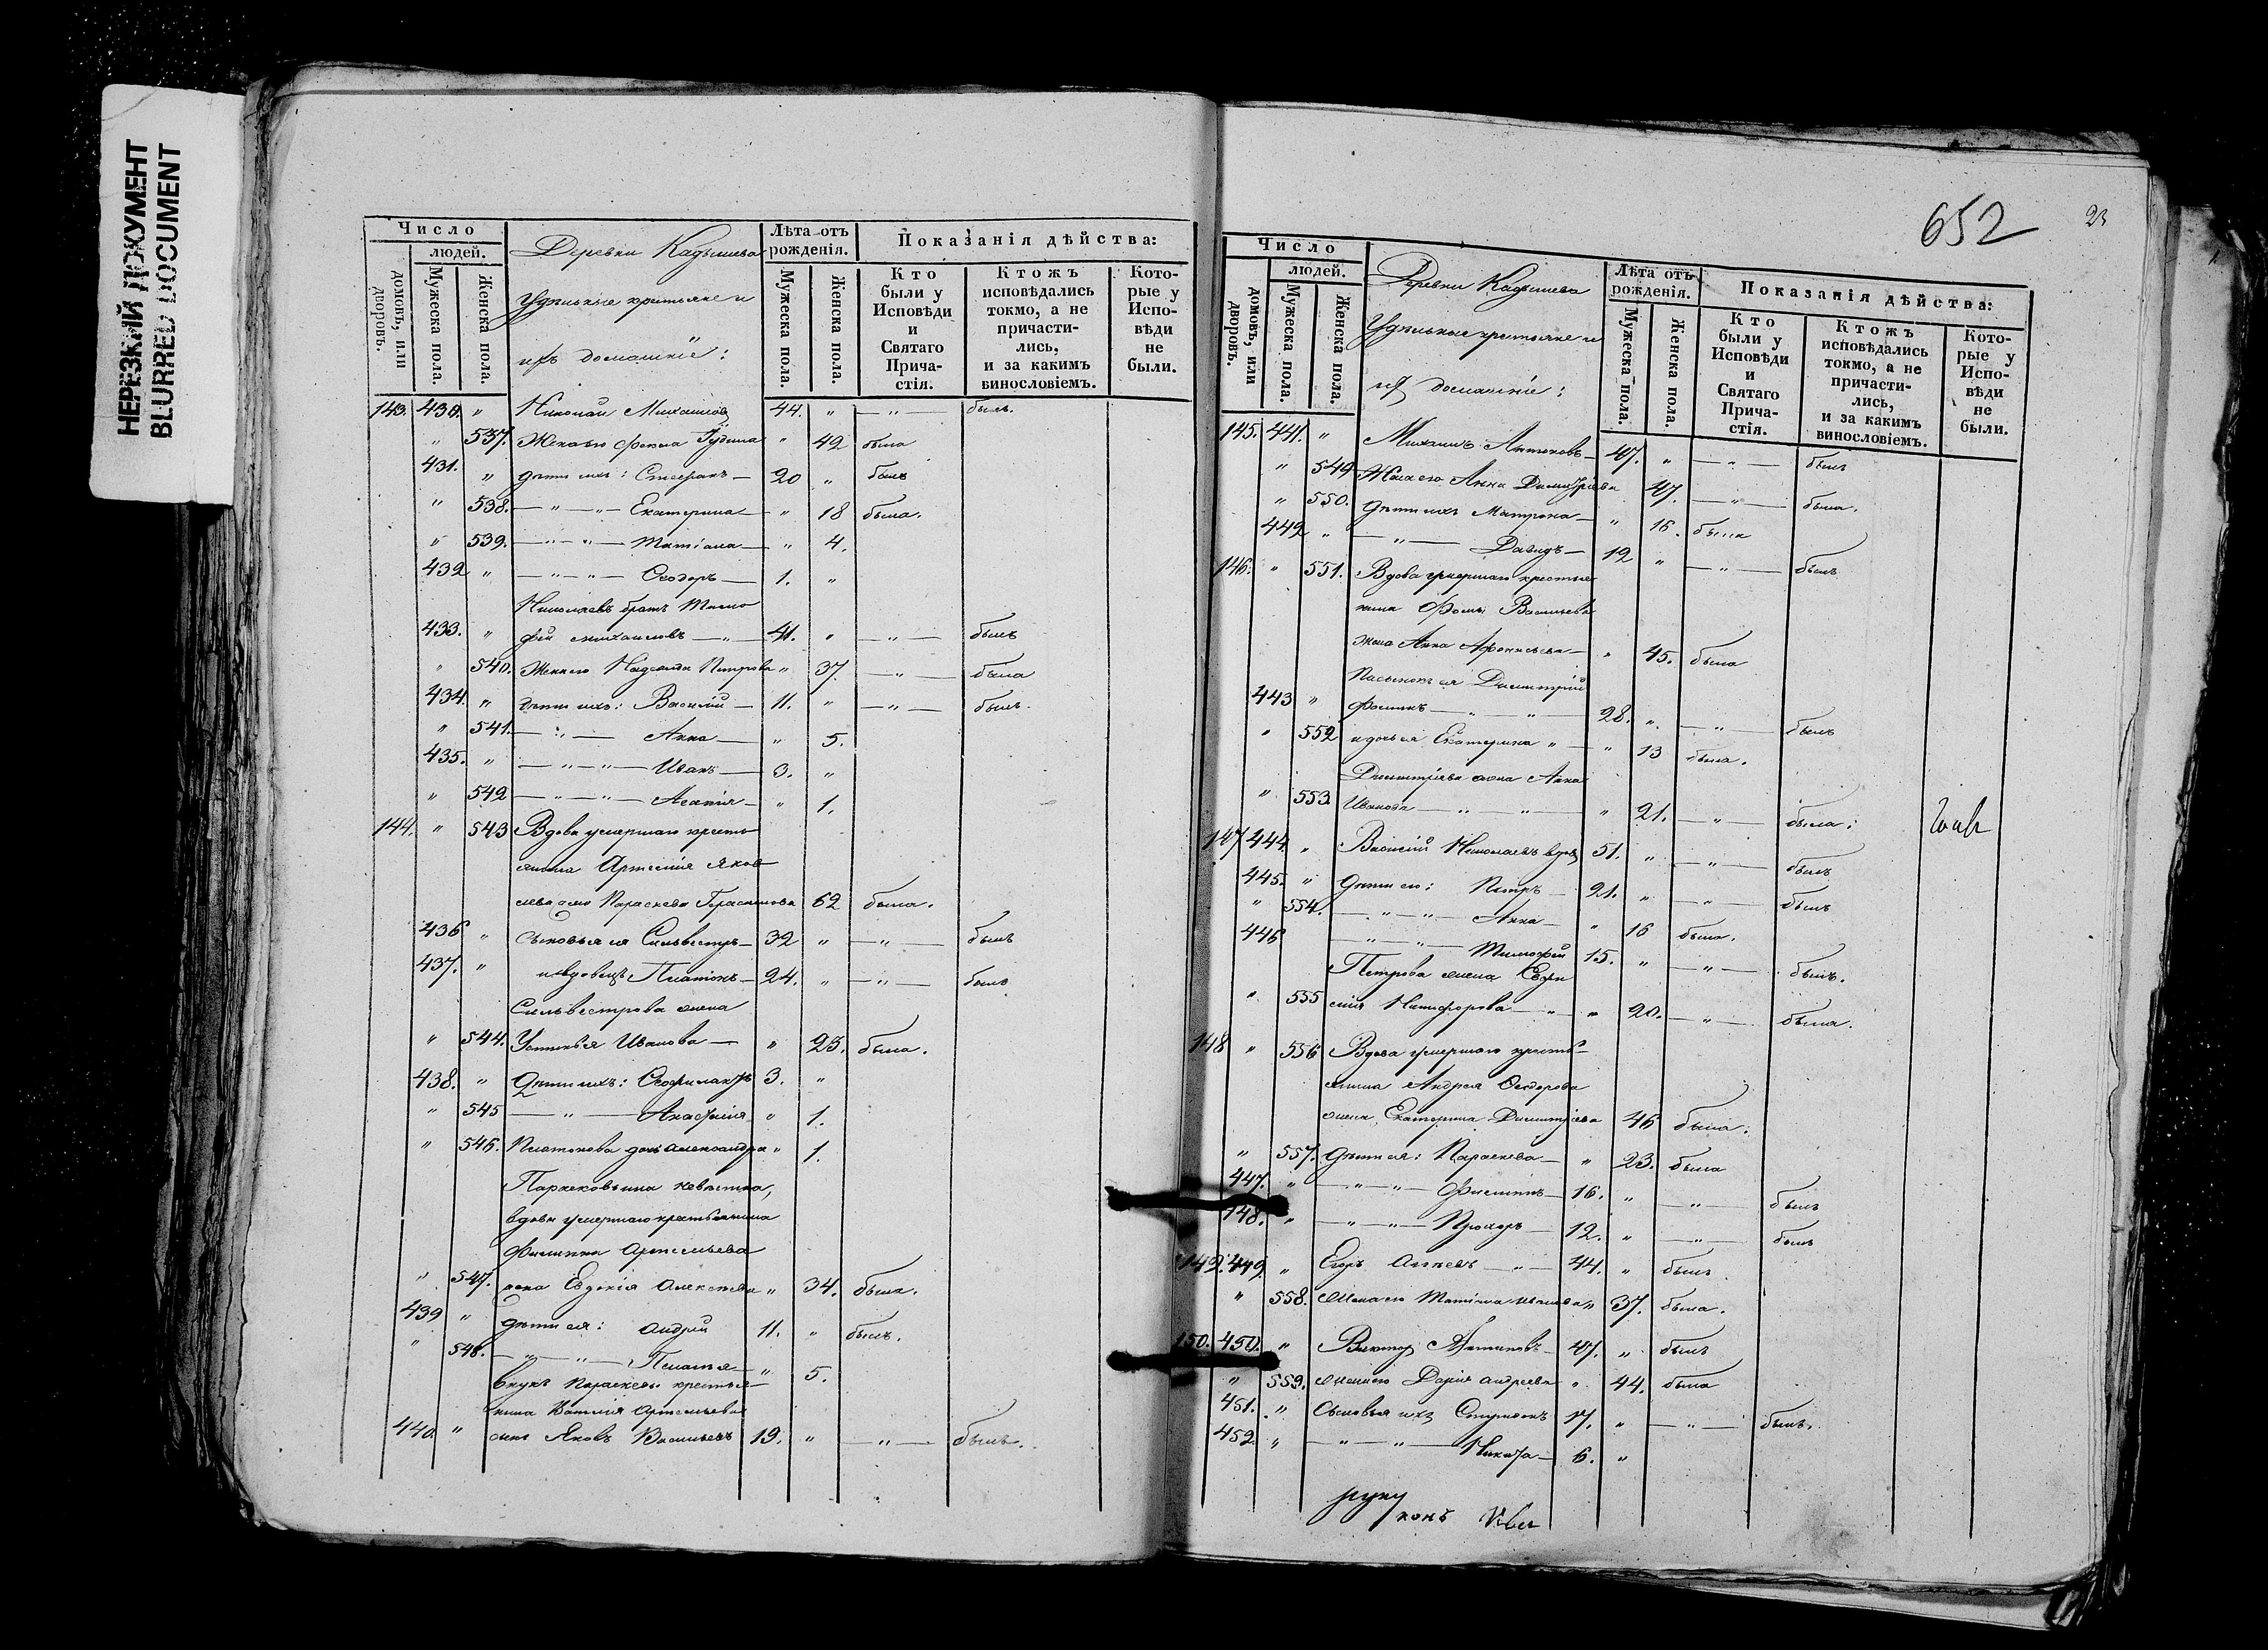 НЕРЕЗКИЙ ДОКУМЕНТ
BLURRED DOCUMENT
Число
людей.
домовъ, или дворовъ.
Мужеска пола.
Женска пола.
Деревни Кадышева
Удѣльные крестьяне и
ихъ домашніе:
Лѣта отъ рожденія.
Мужеска пола.
Женска пола.
Показанія дѣйства:
Кто были у Исповѣди и Святаго Прича-стія.
Ктожъ исповѣдались токмо, а не причасти-лись, и за какимъ винословіемъ.
Кото-рые у Испо-вѣди не были.
143. 430. " Николай Михаиловъ 44. " — " — былъ.
" 537. Жена его Фекла " 42 была
431. " Дѣти ихъ: Стефанъ — 20 " былъ
" 538. — " — " — Екатерина — " 18 была.
" 539. — " — " — Татіана — " 4.
432 " — " — " — Ѳеодоръ — 1. "
Николаевъ братъ Тимо
433. " фей Михаиловъ — " — 41. " — " — былъ
" 540. Жена его Надежда Петрова " 37. — " — была
434. " Дѣти ихъ: Василій — 11. " — " — былъ.
" 541. — " — Анна — " 5.
435. " — " — " — Иванъ — 3. "
" 542 — " — " — Агапія — " 1.
144. " 543 Вдова умершаго кресть
янина Артемія Яков
лева жена Параскева Герасимова 62 была.
436 " Сыновья ея Сильвестръ — 32 " — " — былъ
437. " и вдовецъ Платонъ — 24. " — " — былъ
Сильвестрова жена
" 544. Устинья Иванова — " 23. была.
438. " Дѣти ихъ: Ѳеофилактъ 3. "
" 545 — " — " 1.
" 546. Платонова дочь Александра " 1.
невѣстка,
вдова умершаго крестьянина
Филиппа Артемьева
" 547. жена Евдокія Алексѣева " 34. была.
439 " Дѣти ея: Андрей 11. " былъ.
" 548. — " — " — Пелагья — " 5.
внукъ Параскевы крестья-
нина Василія Артемьева
440. " сынъ Яковъ Васильевъ 19. " — " — былъ.
652
23
Число
людей.
домовъ, или дворовъ.
Мужеска пола.
Женска пола.
Деревни Кадышева
Удѣльные крестьяне и
ихъ домашніе:
Лѣта отъ рожденія.
Мужеска пола.
Женска пола.
Показанія дѣйства:
Кто были у Исповѣди и Святаго Прича-стія.
Ктожъ исповѣдались токмо, а не причасти-лись, и за какимъ винословіемъ.
Кото-рые у Испо-вѣди не были.
145. 441. " Михаилъ Антоновъ — 47. " — " — былъ
" 549 Жена его Анна Димитріева 47. — " — была.
" 550. Дѣти ихъ Матрона — " 16. была
442 " — " — Давидъ — 12 " — " — былъ
146. " 551. Вдова умершаго крестья
нина Фомы Васильева
жена Анна Афонасьева — " 45. была
Пасынокъ ея Димитрій
443 " Фоминъ — " — " — 28. " — " — былъ
" 552 и дочь ея Екатерина " — " 13 была.
Димитріева жена Анна
" 553. Иванова — " — " — " 21. — " — была.
147 444. " Василій Николаевъ вдов 51. " — " — былъ
445. " Дѣти его: Петръ — 21. " — " — былъ
" 554. — " — " — Анна — " 16 была.
446 — " — " — Тимофей 15. " — " — былъ.
Петрова жена Евдо
" 555 Никифорова — " — " 20. — " — была.
148 " 556 Вдова умершаго кресть-
янина Андрея Ѳеодорова
жена Екатерина Димитріева 46 была.
" 557. Дѣти ея: Параскева — " 23. была
447. " — " — " — Филиппъ — 16. " — " — былъ
148. " — " — " — Прохоръ — 12. " — " — былъ
149. 449. " Егоръ — " — 44. " былъ
" 558. Жена его Татіана " 37. была.
150. 450. " Викторъ 47. " былъ
" 559. Жена его Дарія Андреева " 44. была
451. " Сыновья ихъ 17. " — " — былъ.
452. " — " — " — Никита — 6. "
руку